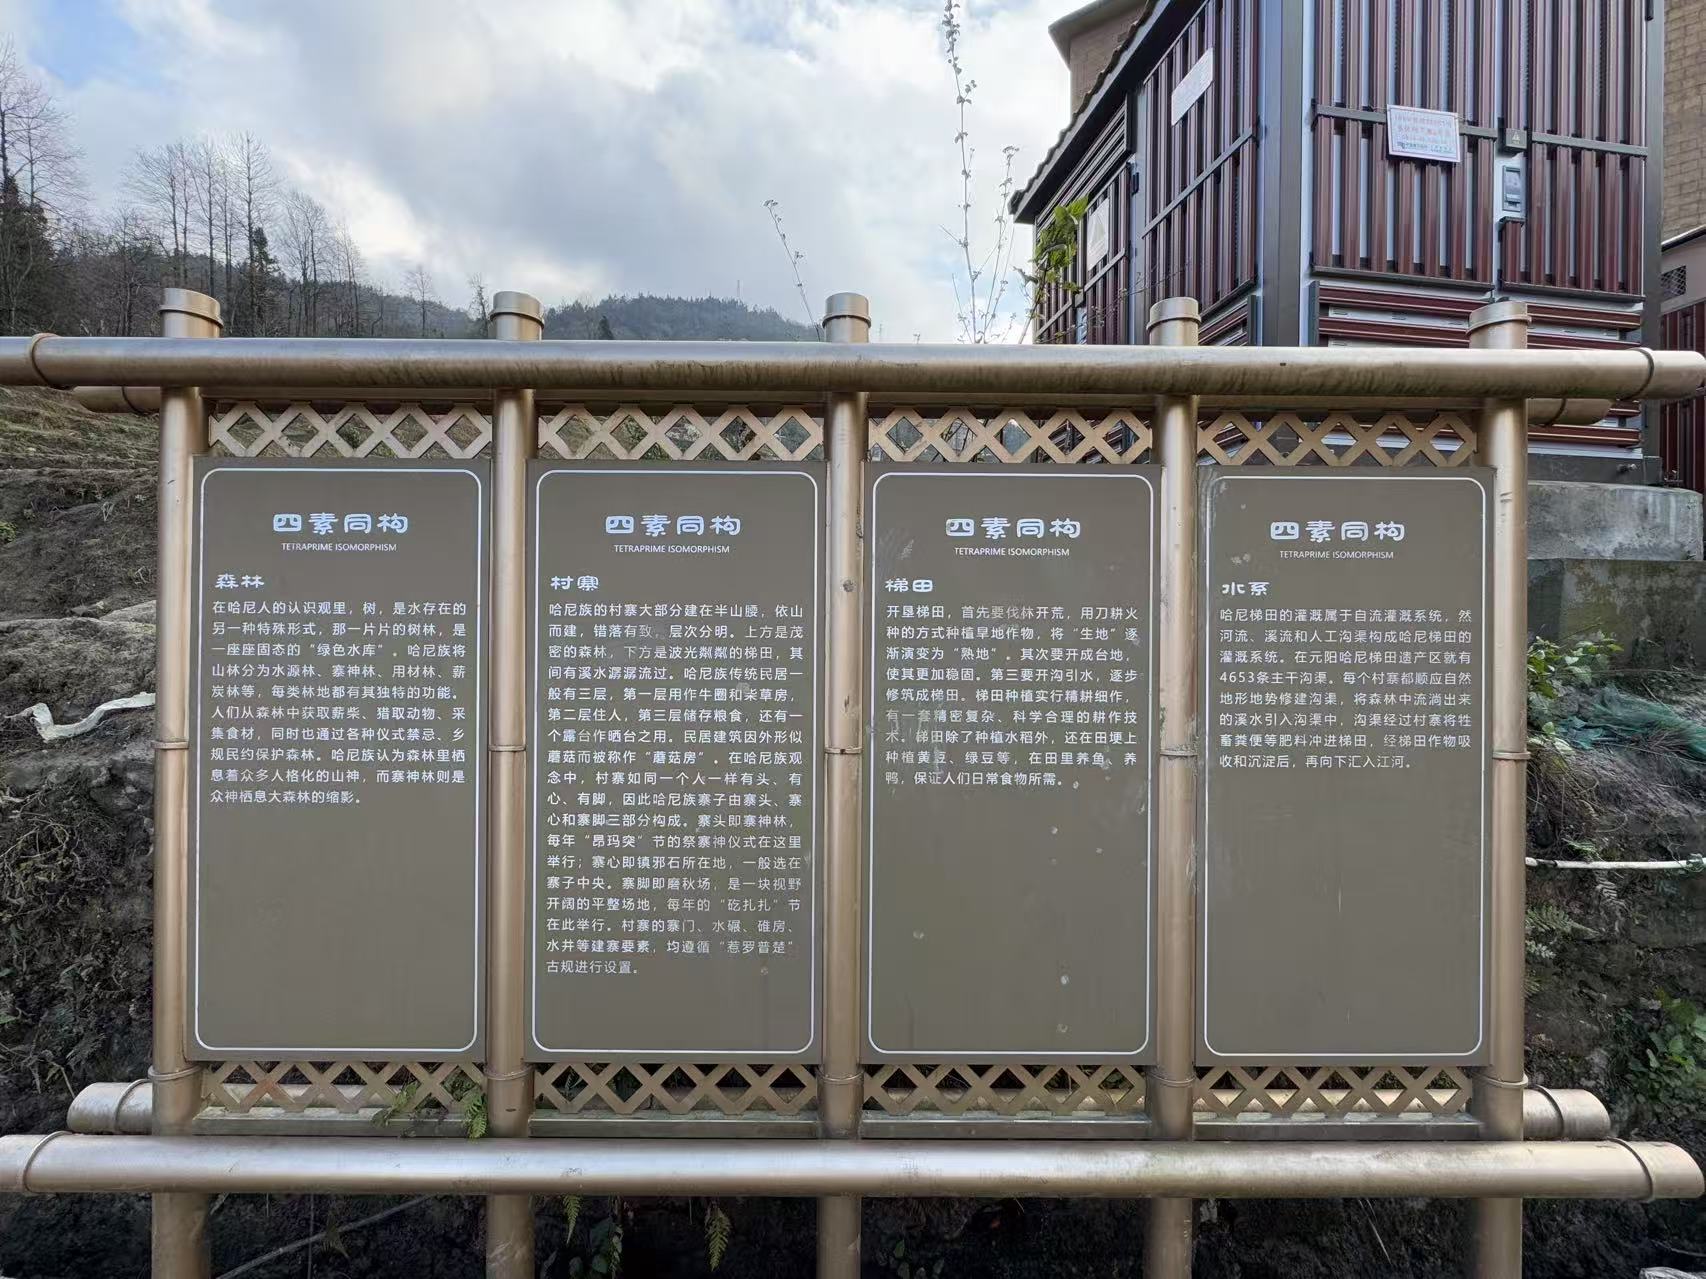 四素同构
TETRAPRIME ISOMORPHISM
森林
在哈尼人的认识观里，树，是水存在的
另一种特殊形式，那一片片的树林，是
一座座固态的“绿色水库”。哈尼族将
山林分为水源林、寨神林、用材林、薪
炭林等，每类林地都有其独特的功能。
人们从森林中获取薪柴、猎取动物、采
集食材，同时也通过各种仪式禁忌、乡
规民约保护森林。哈尼族认为森林里栖
息着众多人格化的山神，而寨神林则是
众神栖息大森林的缩影。
四素同构
TETRAPRIME ISOMORPHISM
村寨
哈尼族的村寨大部分建在半山腰，依山
而建，错落有致，层次分明。上方是茂
密的森林，下方是波光粼粼的梯田，其
间有溪水潺潺流过。哈尼族传统民居一
般有三层，第一层用作牛圈和柴草房，
第二层住人，第三层储存粮食，还有一
个露台作晒台之用。民居建筑因外形似
蘑菇而被称作“蘑菇房”。在哈尼族观
念中，村寨如同一个人一样有头、有
心、有脚，因此哈尼族寨子由寨头、寨
心和寨脚三部分构成。寨头即寨神林，
每年“昂玛突”节的祭寨神仪式在这里
举行；寨心即镇邪石所在地，一般选在
寨子中央。寨脚即磨秋场，是一块视野
开阔的平整场地，每年的“矻扎扎”节
在此举行。村寨的寨门、水碾、碓房、
水井等建寨要素，均遵循“惹罗普楚”
古规进行设置。
四素同构
TETRAPRIME ISOMORPHISM
梯田
开垦梯田，首先要伐林开荒，用刀耕火
种的方式种植旱地作物，将“生地”逐
渐演变为“熟地”。其次要开成台地，
使其更加稳固。第三要开沟引水，逐步
修筑成梯田。梯田种植实行精耕细作，
有一套精密复杂、科学合理的耕作技
术。梯田除了种植水稻外，还在田埂上
种植黄豆、绿豆等，在田里养鱼、养
鸭，保证人们日常食物所需。
四素同构
TETRAPRIME ISOMORPHISM
水系
哈尼梯田的灌溉属于自流灌溉系统，然
河流、溪流和人工沟渠构成哈尼梯田的
灌溉系统。在元阳哈尼梯田遗产区就有
4653条主干沟渠。每个村寨都顺应自然
地形地势修建沟渠，将森林中流淌出来
的溪水引入沟渠中，沟渠经过村寨将牲
畜粪便等肥料冲进梯田，经梯田作物吸
收和沉淀后，再向下汇入江河。